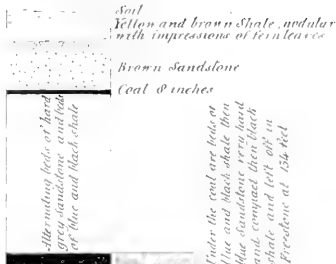 Soil
Yellow and brown Shale, nodular
with impressions of fern leaves
Brown Sandstone
Coal 8 inches
Alternating beds of hard
grey Sandstone and beds
of blue and black shale
Under the coal are beds of
blue and black shale then
blue Sandstone very hard
and compact then black
shale and left off in
Freestone at 134 feet